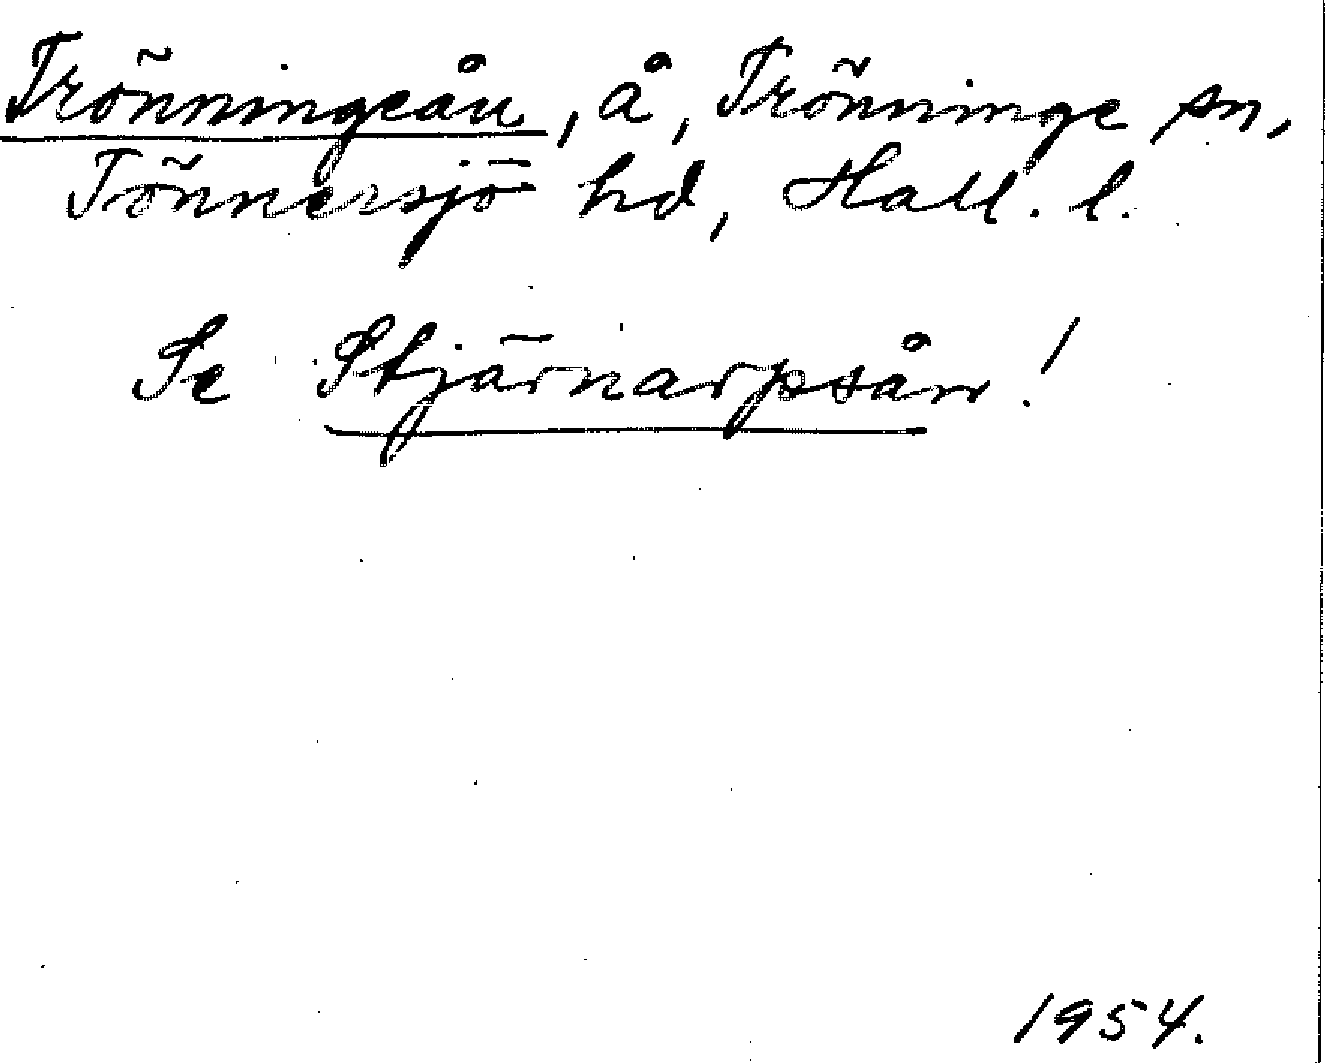 Trönningeån, å, Trönninge sn,
Tönnersjö hd, Hall. l.
Se Stjärnarpsån!
1954.